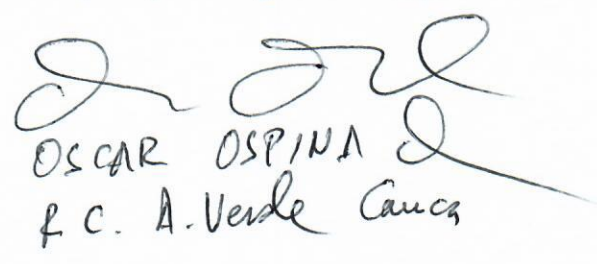 OSCAR OSPINA
R.C. A. Verde Cauca